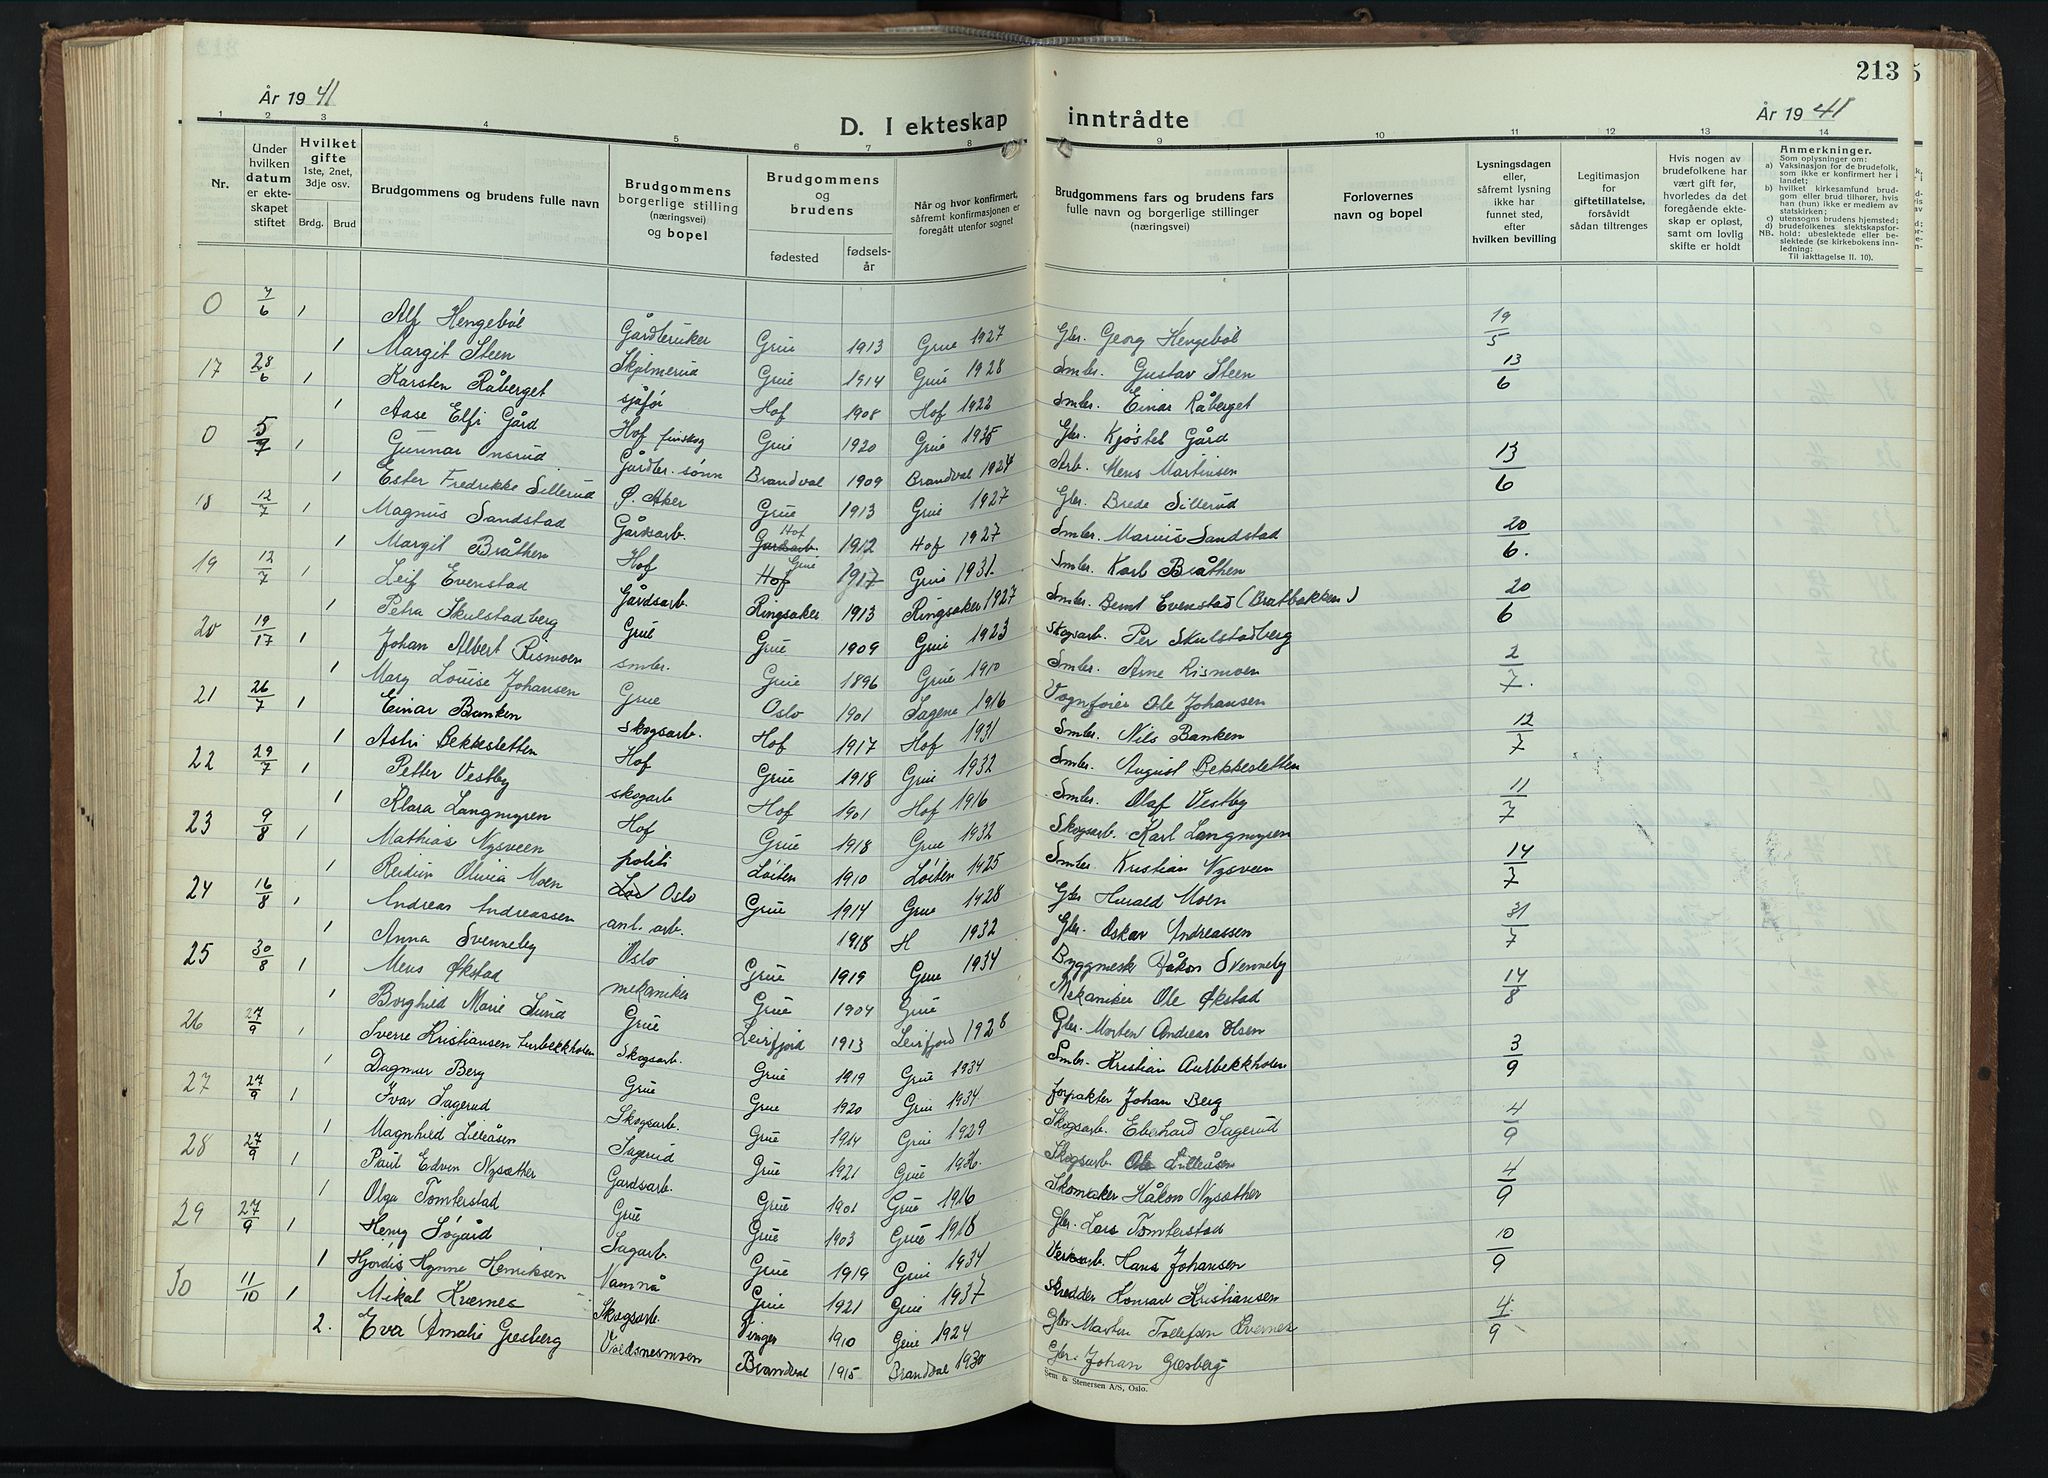 213
År 1941
D. I ekteskap inntrådte
År 1941
1 2 3 4 5 6 7 8 9 10 11 12 13 14
Nr.
Under hvilken datum er ekteskapet stiftet
Hvilket gifte 1ste, 2net, 3dje osv.
Brdg. Brud
Brudgommens og brudens fulle navn
Brudgommens borgerlige stilling (næringsvei) og bopel
Brudgommens og brudens
fødested
fødselsår
Når og hvor konfirmert, såfremt konfirmasjonen er foregått utenfor sognet
Brudgommens fars og brudens fars fulle navn og borgerlige stillinger (næringsvei)
Forlovernes navn og bopel
Lysningsdagen eller, såfremt lysning ikke har funnet sted, efter hvilken bevilling
Legitimasjon for giftetillatelse, forsåvidt sådan tiltrenges
Hvis nogen av brudefolkene har vært gift før, hvorledes da det foregående ekteskap er opløst, samt om lovlig skifte er holdt
Anmerkninger.
Som oplysninger om:
a) Vaksinasjon for de brudefolk, som ikke er konfirmert her i landet;
b) hvilket kirkesamfund brudgom eller brud tilhører, hvis han (hun) ikke er medlem av statskirken;
c) utensogns brudens hjemsted;
d) brudefolkenes slektskapsforhold: ubeslektede eller beslektede (se kirkebokens innledning:
NB. Til iakttagelse II. 10).
0 7/6 1 Alf Hengebøl Gårdbruker Grue 1913 Grue 1927 Gbr. Georg Hengebøl 19/5
1 Margit Steen Skjølmerud Grue 1914 Grue 1928 Smbr. Gustav Steen
17 28/6 1 Karsten Råberget sjåfør Hof 1908 Hof 1922 Smbr. Einar Råberget 13/6
1 Aase Elfi Gård Hof finskog Grue 1920 Grue 1935 Gbr. Kjøstel Gård
0 5/7 1 Gunnar Onsrud Gårdbr. sønn Brandval 1909 Brandval 1924 Arb. Mens Martinsen 13/6
1 Ester Fredrikke Sillerud Ø. Aker Grue 1913 Grue 1927 Gbr. Brede Sillerud
18 12/7 1 Magnus Sandstad Gårdsarb. Gardsarb. Hof 1912 Hof 1927 Smbr. Marius Sandstad 20/6.
1 Margit Bråthen Hof Hof Grue 1917 Grue 1931. Smbr. Karl Bråthen
19 12/7 1 Leif Evenstad Gårdsarb. Ringsaker 1913 Ringsaker 1927 Smbr. Bernt Evenstad (Bratbakken) 20/6
1 Petra Skulstadberg Grue Grue 1909 Grue 1923 Skogsarb. Per Skulstadberg
20 19/17 1 Johan Albert Rismoen smbr. Grue 1896 Grue 1910 Smbr. Arne Rismoen 2/7.
1 Mary Louise Johansen Grue Oslo 1901 Sagene 1916 Vognfører Ole Johansen
21 26/7 1 Einar Banken Skogsarb. Hof 1917 Hof 1931 Smbr. Nils Banken 12/7
1 Astri Bekkesletten Hof Grue 1918 Grue 1932 Smbr. August Bekkesletten
22 29/7 1 Petter Vestby skogarb Hof 1901 Hof 1916 Smbr. Olaf Vestby 11/7
1 Klara Langmyren Hof Grue 1918 Grue 1932 Skogsarb. Karl Langmyren
23 9/8 1 Mathias Nysveen politi Løiten 1910 Løiten 1925 Smbr. Kristian Nysveen 14/7
1 Reidun Olivia Moen Oslo Grue 1914 Grue 1928 Gbr Harald Moen
24 16/8 1 Andreas Andreassen anl. arb. 1918 H 1932 Gbr. Oskar Andreassen 31/7
1 Anna Svenneby Oslo Grue 1919 Grue 1934 Byggmesk Håkon Svenneby
25 30/8 1 Mens Økstad mekaniker Grue 1904 Grue Mekaniker Ole Økstad 14/8
1 Borghild Marie Sund Grue Leirfjord 1913 Leirfjord 1928 Gbr. Morten Andreas Olsen
26 27/9 1 Sverre Kristiansen Skogsarb. Grue 1919 Grue 1934 Smbr. Kristian Aurbekkholen 3/9
1 Dagmar Berg Grue Grue 1920 Grue 1934 forpakter Johan Berg
27 27/9 1 Ivar Sagerud Skogsarb. Grue 1914 Grue 1929 Skogsarb. Eberhard Sagerud 4/9
1 Magnhild Lilleåsen Sagerud Grue 1921 Grue 1936. Skogsarb. Ole Lilleåsen
28 27/9 1 Paul Edvin Nysæther Gardsarb. Grue 1901 Grue 1916 Skomaker Håkon Nysæther 4/9
1 Olga Tomterstad Grue Grue 1903 Grue 1918 Gbr. Lars Tomterstad
29 27/9 1 Henry Søgård Sagarb. Grue 1919 Grue 1934 Hans Johansen 10/9
1 Hjørdis Hynne Henriksen Namnå Grue 1921 Grue 1937 Skredder Konrad Kristiansen
30 11/10 1 Mikal Kvernes Skogsarb. Vinger 1910 Grue 1924 Gbr. Martin Tollefsen Kvernes 4./9
2. Eva Amalie Gresberg Valdsnesmoen Brandval 1915 Brandval 1930 Gbr. Johan Græsberg
Sem & Stenersen A/S, Oslo.